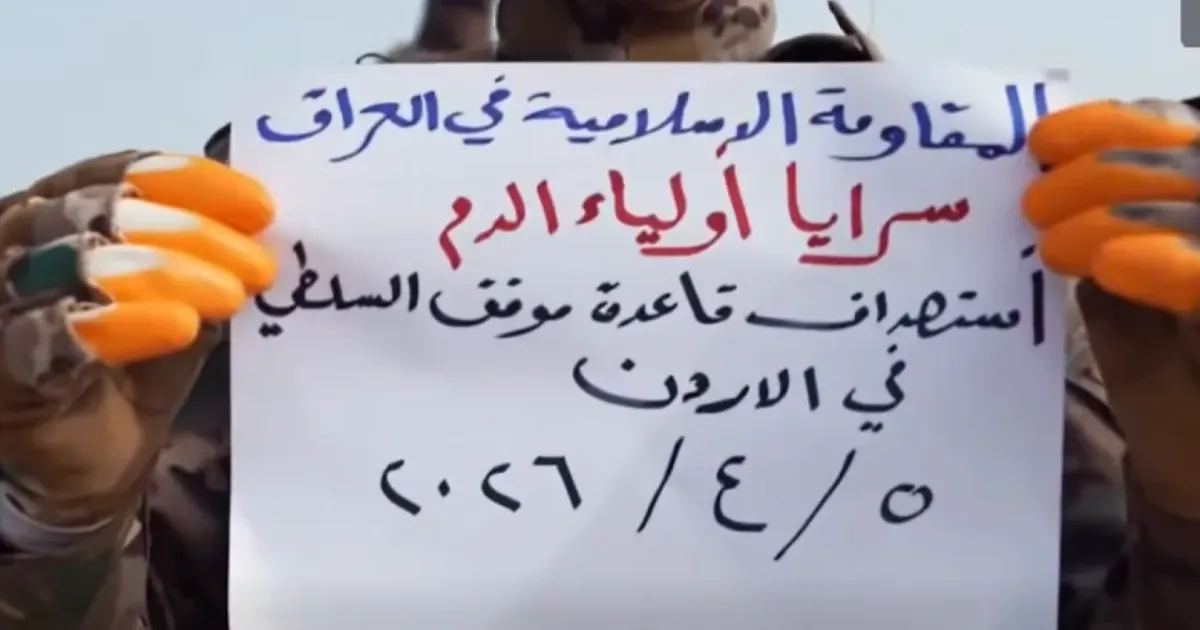 المقاومة الاسلامية في العراق
سرايا أولياء الدم
أستهداف قاعدة موفق السلطي
في الاردن
٥ / ٤ / ٢٠٢٦